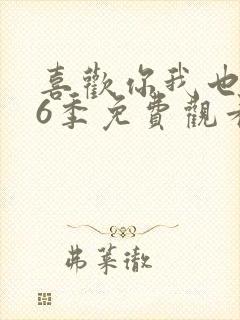 喜歡你我也
6季免費觀看
弗莱徹